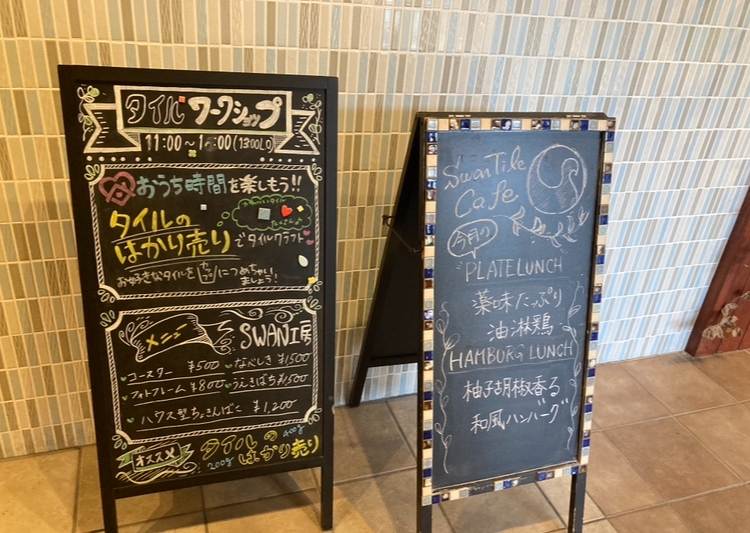 タイル ワークショップ
おうち時間を楽しもう!!
タイルの
はかり売り でタイルクラフト
お好きなタイルを カップ につめちゃい
ましょう!
メニュー
SWAN工房
コースター ¥500
なべしき ¥1500
フォトフレーム ¥800
うえきばち ¥1500
ハウス型ちょきんばこ ¥1,200
オススメ
タイルの
はかり売り
200g
400g
Swan Tile
Cafe
今月の
PLATE LUNCH
薬味たっぷり
油淋鶏
HAMBURG LUNCH
柚子胡椒香る
和風ハンバーグ